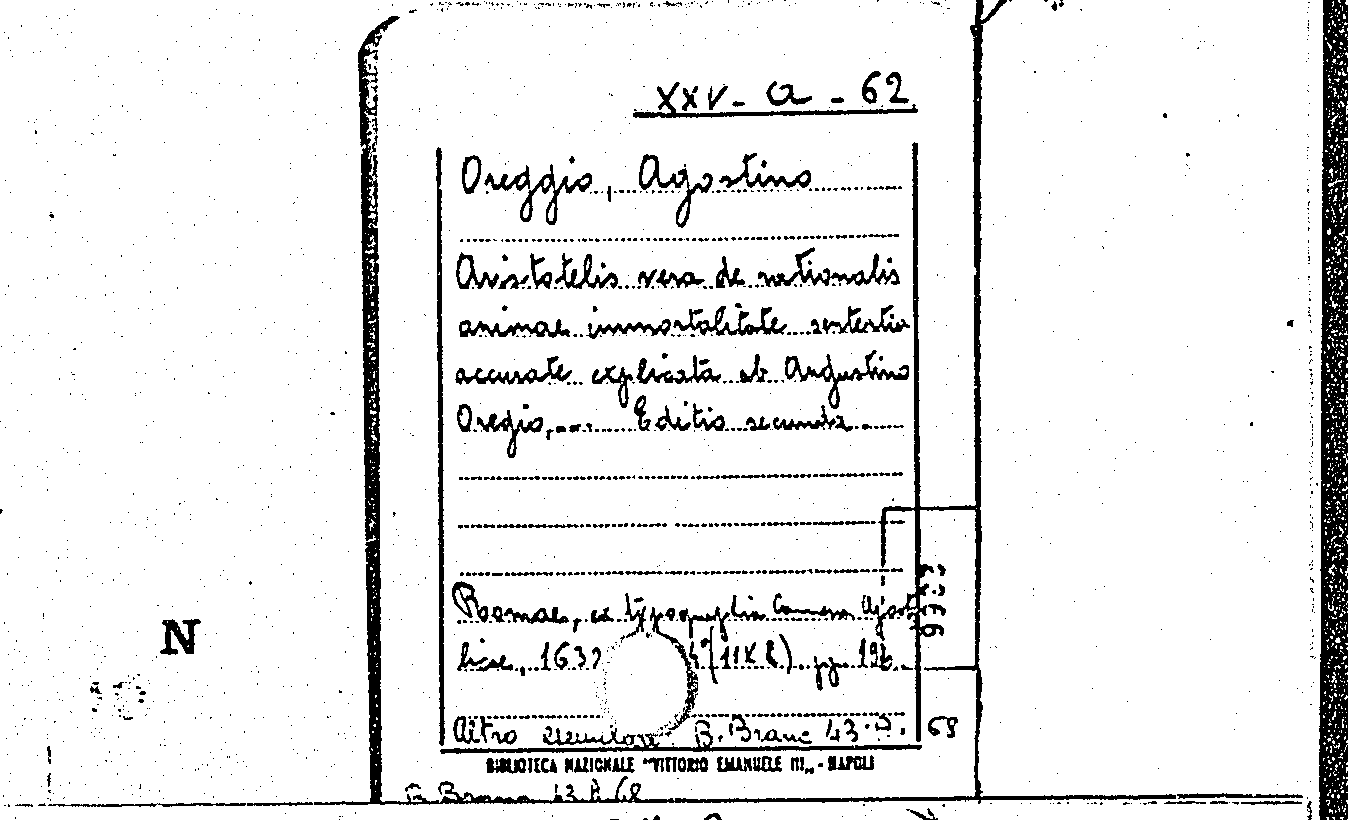 XXV - a - 62
Oreggio, Agostino
Aristotelis vera de rationalis
animae immortalitate sententia
accurate explicata ab Augustino
Oregio,... Editio secunda.
Romae, ex typographia Camera Aposto
licae, 163 4° (11X8) pp. 196.
Altro esemplare B. Branc 43.A. 68
BIBLIOTECA NAZIONALE "VITTORIO EMANUELE III„ - NAPOLI
B. Branc 43 A 68
N